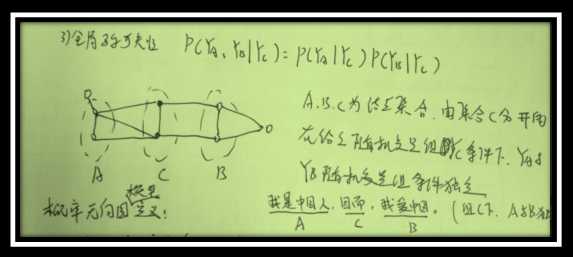 3) 全局马尔可夫性 P(Y_A, Y_B | Y_C) = P(Y_A | Y_C) P(Y_B | Y_C)
A.B.C为结点集合,由集合C分开的
在给定随机变量组Y_C条件下,Y_A与
Y_B随机变量组条件独立
A C B
概率无向图模型定义:
我是中国人,因而,我爱中国。
A C B